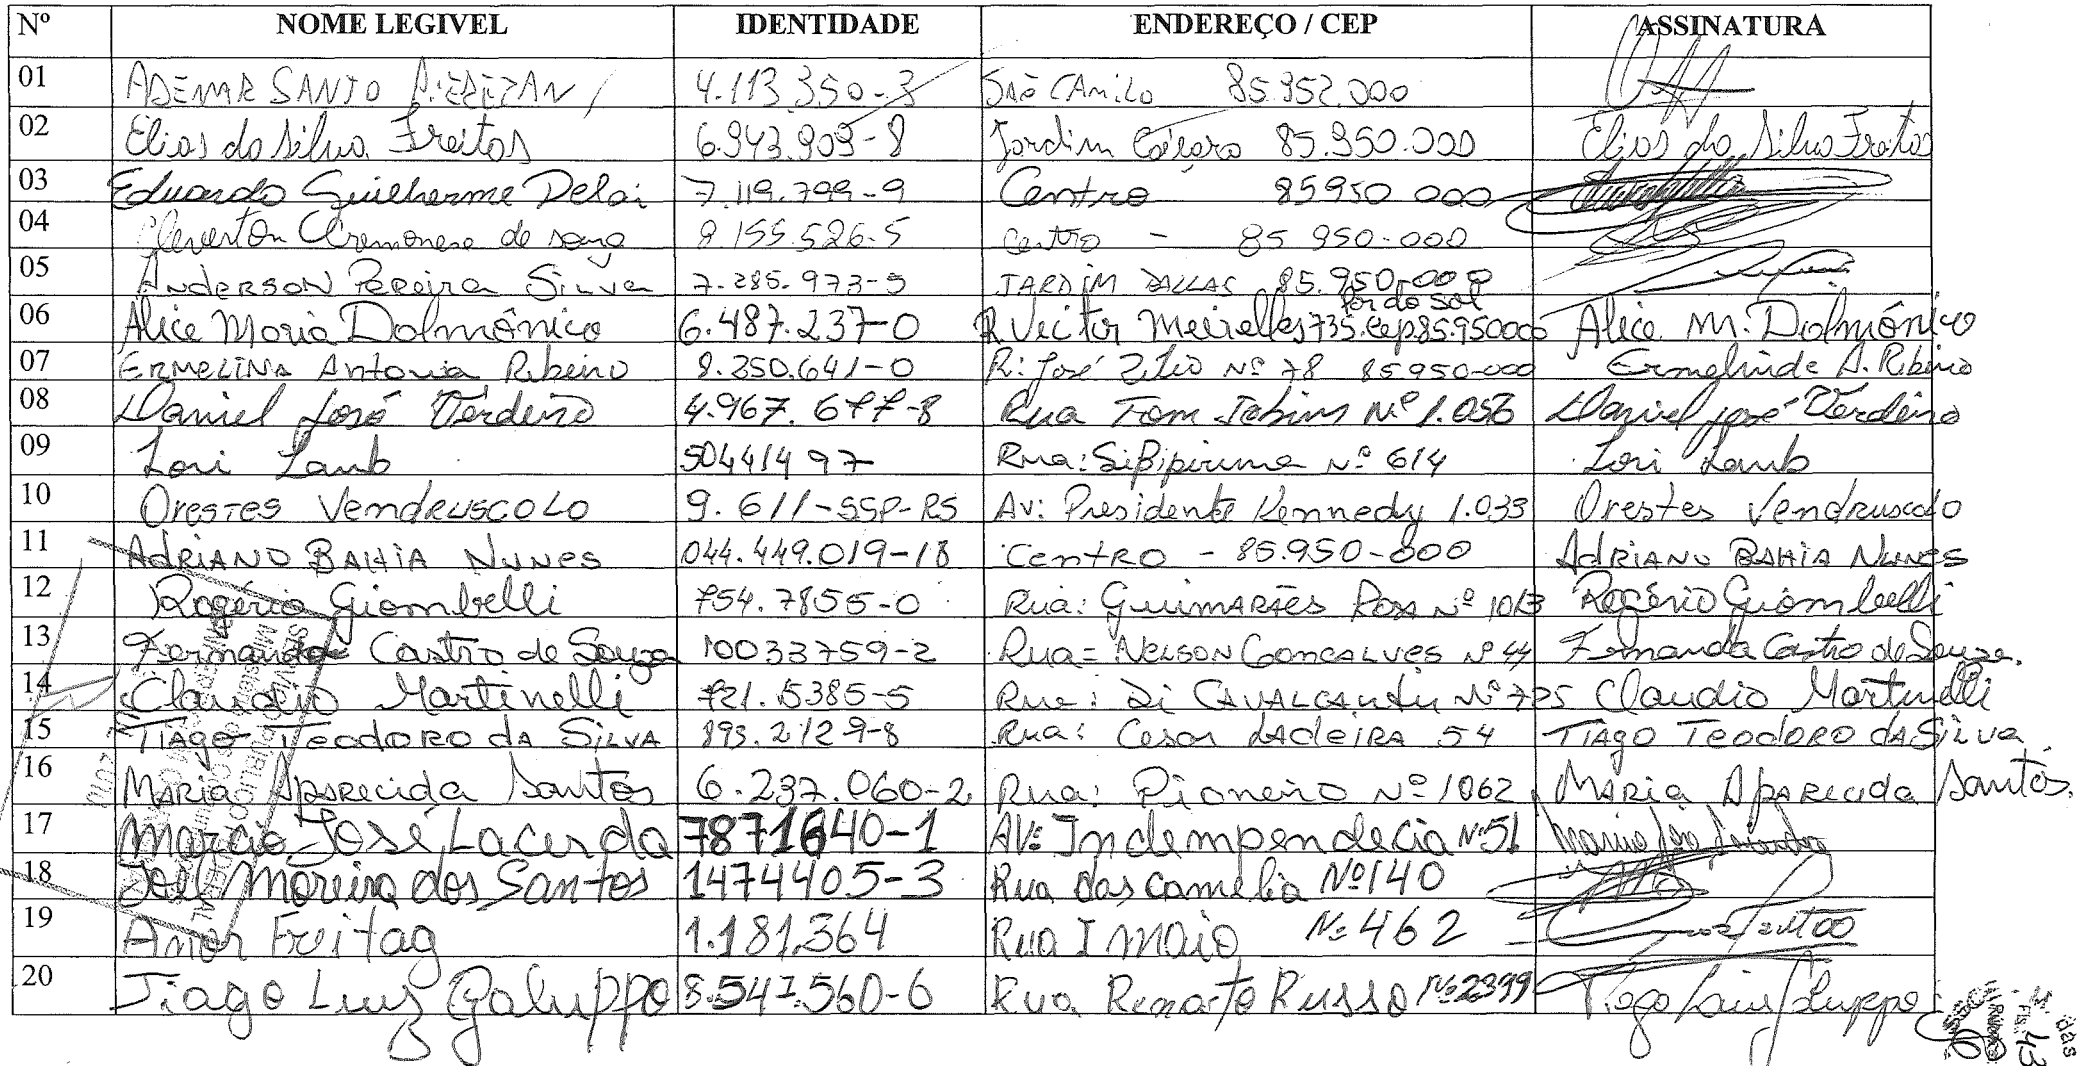 Nº NOME LEGIVEL IDENTIDADE ENDEREÇO / CEP ASSINATURA
01 ADEMAR SANTO 4.113.350-3 São CAmilo 85.952.000
02 Elias da Silva Freitas 6.943.909-8 Jardim 85.950.000 Elias da Silva Freitas
03 Eduardo Guilherme Delai 7.119.799-9 Centro 85950 000
04 Cleverton Cremonese de 8.155.526-5 Centro - 85 950-000
05 ANDERSON PEREIRA SILVA 7.285.973-5 JARDIM DALLAS 85.950-000
06 Alice Maria Dalmônico 6.487.237-0 R Victor Meirelles 735. Cep 85.950000 Por do sol Alice M. Dalmônico
07 ERMELINA Antonia Ribeiro 8.350.641-0 R: José Zitio Nº 78 85950-000 Ermelinda A. Ribeiro
08 Daniel José Verdeiro 4.967.677-8 Rua Tom Jobim Nº 1.056 Daniel José Verdeiro
09 Lori Lamb 5044141497 Rua: SiBipiruna Nº 614 Lori Lamb
10 Orestes Vendruscolo 9.611-SSP-RS Av: Presidente Kennedy 1.033 Orestes Vendruscolo
11 ADRIANO BAHIA NUNES 044.449.019-18 Centro - 85.950-000 ADRIANO BAHIA NUNES
12 Rogério Giombelli 754.7855-0 Rua: GuimARÃES Rosa Nº 1013 Rogério Giombelli
13 Fernanda Castro de Souza 10033759-2 Rua= NELSON GONCALVES Nº 44 Fernanda Castro de Souza.
14 Claudio Martinelli 721.5385-5 Rua: Di CAVALCANti Nº 725 Claudio Martinelli
15 TIAGO TEODORO DA SILVA 893.2129-8 Rua: Cesar LADEIRA 54 TIAGO TEODORO DA SILVA
16 MARIA APARECIDA Santos 6.237.060-2 Rua: Pioneiro Nº 1062 MARIA APARECIDA Santos.
17 Marcio José Lacerda 7871640-1 AV: Indempendecia Nº51
18 Joel Moreira dos Santos 1474405-3 Rua das camelia Nº140
19 Anor Freitag 1.181.364 Rua I maio Nº 462
20 Tiago Luiz Galuppo 8.547.560-6 Rua Renato Russo Nº2399 Tiago Luiz Galuppo
Fls. 43